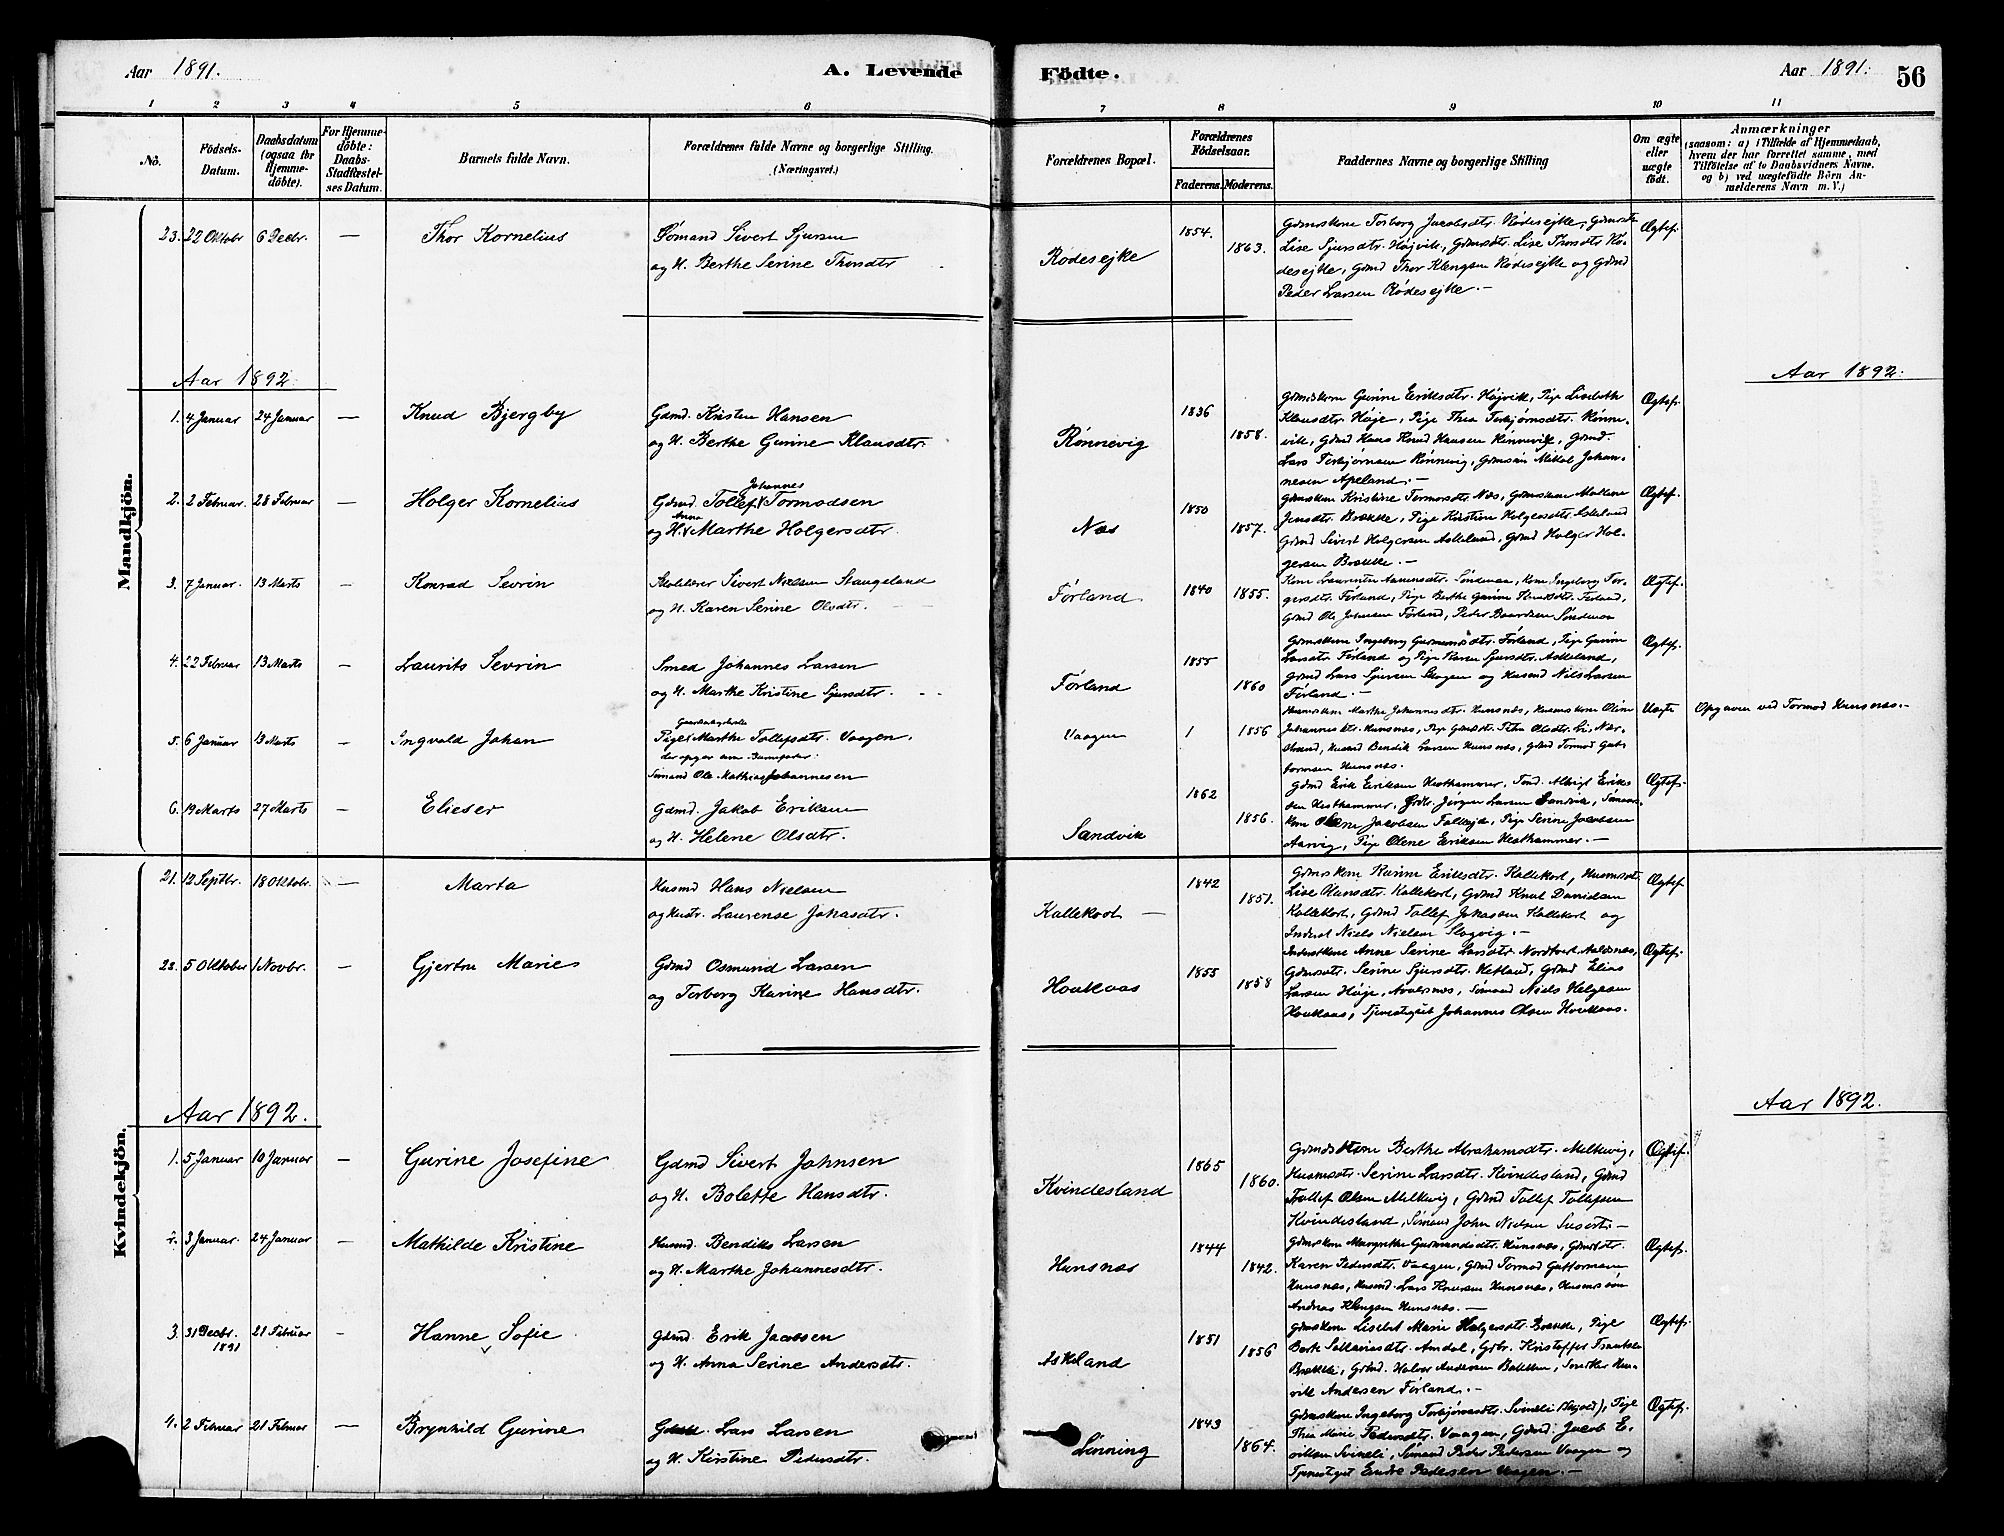 Aar 1891. A. Levende Födte. Aar 1891. 56
1 2 3 4 5 6 7 8 9 10 11
No. Födsels-Datum. Daabsdatum (ogsaa for Hjemmedöbte). For Hjemmedöbte: Daabs-Stadfæstelses Datum. Barnets fulde Navn. Forældrenes fulde Navne og borgerlige Stilling. (Næringsvei.) Forældrenes Bopæl. Forældrenes Födselsaar. Faderens. Moderens. Faddernes Navne og borgerlige Stilling Om ægte eller uægte födt. Anmærkninger (saasom: a) i Tilfælde af Hjemmedaab, hvem der har forrettet samme, med Tilföielse af to Daabsvidners Navne, og b) ved uægtefödte Börn Anmelderens Navn m. V.)
Mandkjön.
23. 22 Oktobr 6 Decbr. — Thor Kornelius Sømand Sivert Sjursen
og H. Berthe Serine Thorsdtr Rødesejke 1854. 1863. Ægtef.
Gdmskone Torborg Jacobsdtr. Rødesejke,
Lise Sjursdtr. Højvik, Gdmsdtr. Lise Thorsdtr Rø-
desejke, Gdmd Thor Klengsen Rødesejke og Gdmd
Peder Larsen Rødesejke. —
Aar 1892. Aar 1892.
1. 4 Januar 24 Januar — Knud Bjergby Gdmd. Kristen Hansen
og H. Berthe Gurine Klausdtr. Rønnevig 1836 1858. Ægtef.
Gdmskone Gunne Eriksdtr. Højvik, Pige Lisebeth
Klausdtr. Høje, Pige Thea Torbjørnsdtr. Rønne-
vik, Gdmd Hans Knud Hansen Rønnevik, Gdmd.
Lars Torbjørnsen Rønnevig, Gdmssøn Mikal Johan-
nesen Apeland. —
2. 2 Februar 28 Februar — Holger Kornelius Gdmd. Tollef Johannes Tormodsen
og H. Anna Marthe Holgersdtr. Næs 1850 1857. Ægtef.
Gdmskone Kristine Tormodsdtr. Næs, Gdmskone Mallene
Jensdtr. Brække, Pige Kristine Holgersdtr. Askeland
Gdmd Sivert Holgersen Askeland, Gdmd Holger Hol-
gersen Brække. —
3. 7 Januar. 13 Marts — Konrad Sevrin Skolelærer Sivert Nielsen Stangeland
og H. Karen Serine Olsdtr. Førland 1840 1855. Ægtef.
Kone Laurentse Aanensdtr. Søndenaa, Kone Ingeborg Tor-
gersdtr. Førland, Pige Berthe Gurine Knudsdtr. Førland,
Gdmd Ole Johnsen Førland, Peder Baardsen Søndenaa
4. 22 Februar 13 Marts — Laurits Sevrin Smed Johannes Larsen
og H. Marthe Kristine Sjursdtr. Førland 1855 1860 Ægtef.
Gdmskone Ingeborg Gudmundsdtr. Førland, Pige Gurine
Larsdtr. Førland og Pige Karen Sjursdtr. Askeland,
Gdmd Lars Sjursen Skogen og Husmd Nils Larsen
Førland. —
5. 6 Januar 13 Marts — Ingvald Johan
Pige Marthe Tollefsdtr. Vaagen,
der opgav som Barnefader:
Sømand Ole Mathias Johannesen Vaagen 1 1856 Uægte Opgaven ved Tormod Hunsnæs. —
Husmskone Marthe Johannesdtr. Hunsnæs, Husmskone Oline
Johannesdtr. Hunsnæs, Pige Thea Olsdtr. Li, Nær-
strand, Husmd Bendik Larsen Hunsnæs, Gdmd Tormod Gut-
tormsen Hunsnæs.
6. 19 Marts 27 Marts — Elieser Gdmd. Jakob Eriksen
og H. Helene Olsdtr. Sandvik 1862 1856. Ægtef.
Gdmd Erik Eriksen Hesthammer, Albrigt Erik-
sen Hesthammer, Jørgen Larsen Sandvik,
kone Olene Jacobsen Folkeja, Pige Serine Jacobsen
Aarvig, Pige Olene Eriksen Hesthammer. —
Kvindekjön.
21. 12 Septbr. 18 Oktobr. — Marta Husmd Hans Nielsen
og Hustr. Laurense Johasdtr. Kallekodt — 1842 1851. Ægtef.
Gdmskone Karine Eriksdtr. Kallekodt, Husmsdtr.
Lise Hansdtr. Kallekodt, Gdmd Knut Danielsen
Kallekodt, Gdmd Tollef Johassen Kallekodt og
Inderst Niels Nielsen Slogvig. —
22. 5 Oktober 1 Novbr. — Gjertru Marie Gdmd Osmund Larsen
og Torborg Karine Hansdtr. Houkaas 1855 1858 Ægtef.
Inderstkone Anne Serine Larsdtr. Nordtveit Avaldsnæs,
Gdmsdtr. Serine Sjursdtr. Hetland, Gdmd Elias
Larsen Høje, Avaldsnæs, Sømand Niels Helgesen
Houkaas, Tjenestegut Johannes Olsen Houkaas.
Aar 1892. Aar 1892.
1. 5 Januar 10 Januar — Gurine Josefine Gdmd Sivert Johnsen
og H. Bolette Hansdtr. Kvindesland 1865 1860. Ægtef.
Gdmdskone Berthe Abrahamsdtr. Melkevig,
Husmsdtr. Serine Larsdtr. Kvindesland, Gdmd
Tollef Olsen Melkevig, Gdmd Tollef Tollefsen
Kvindesland, Sømand John Nielsen Susort. —
2. 3 Januar. 24 Januar — Mathilde Kristine Husmd. Bendiks Larsen
og H. Marthe Johannesdtr. Hunsnæs 1844 1842. Ægtef.
Gdmskone Margrethe Gudmundsdtr. Hunsnæs, Gdmsdtr.
Karen Pedersdtr. Vaagen, Gdmd Tormod Guttormsen
Hunsnæs, Husmd. Lars Knudsen Hunsnæs, Husmssøn
Andreas Klengsen Hunsnæs. —
3. 31 Decbr. 1891 21 Februar — Hanne Sofie Gdmd. Erik Jacobsen
og H. Anna Serine Andersdtr. Askeland 1851 1856 Ægtef.
Gdmskone Liselet Marie Holgersdtr. Brække, Pige
Berte Andal, Gdbr. Kristoffer
Brække, Gdmd. Halvor Andersen Bakken,
Andersen Førland. —
4. 2 Februar 21 Februar — Brynhild Gurine Lars Larsen
og H. Kirstine Pedersdtr. Lønning 1843 1864. Ægtef.
Gdmskone Ingeborg Torbjørnsdtr. Svineli, Pige
Thea Marie Pedersdtr. Vaagen, Gdmd. Jacob E-
riksen Svineli, Sømand Peder Pedersen Vaagen og
Tjenestegut Endre Pedersen Vaagen. —